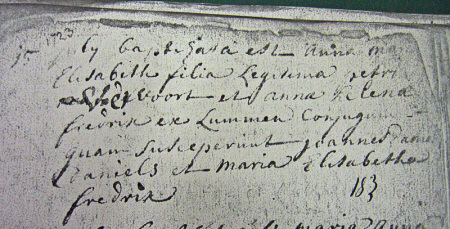 1723
15 ty baptizata est Anna ma
Elisabeth filia Legitima petri
voort et annæ Helena
fredrix ex Lummen Conjugum
quam susceperunt joannes
Daniels et Maria Elisabetha
fredrix
183
maria Anna